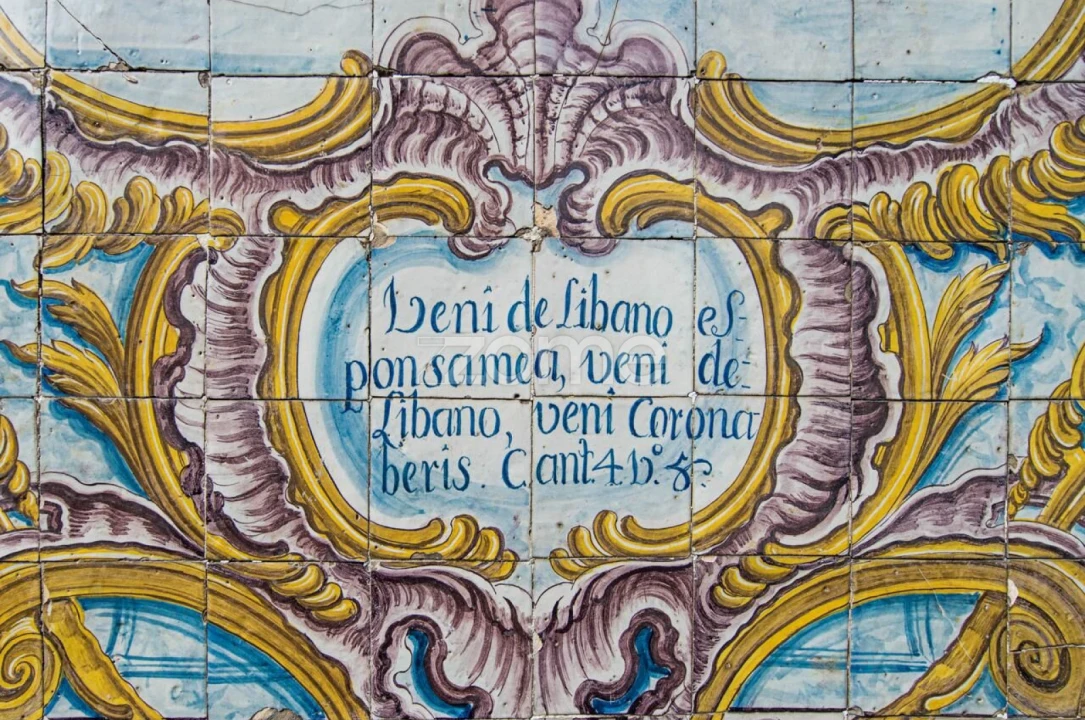 Veni de Libano es-
ponsamea, veni de-
Libano, veni Corona
beris. Cant. 4 v.º 8º